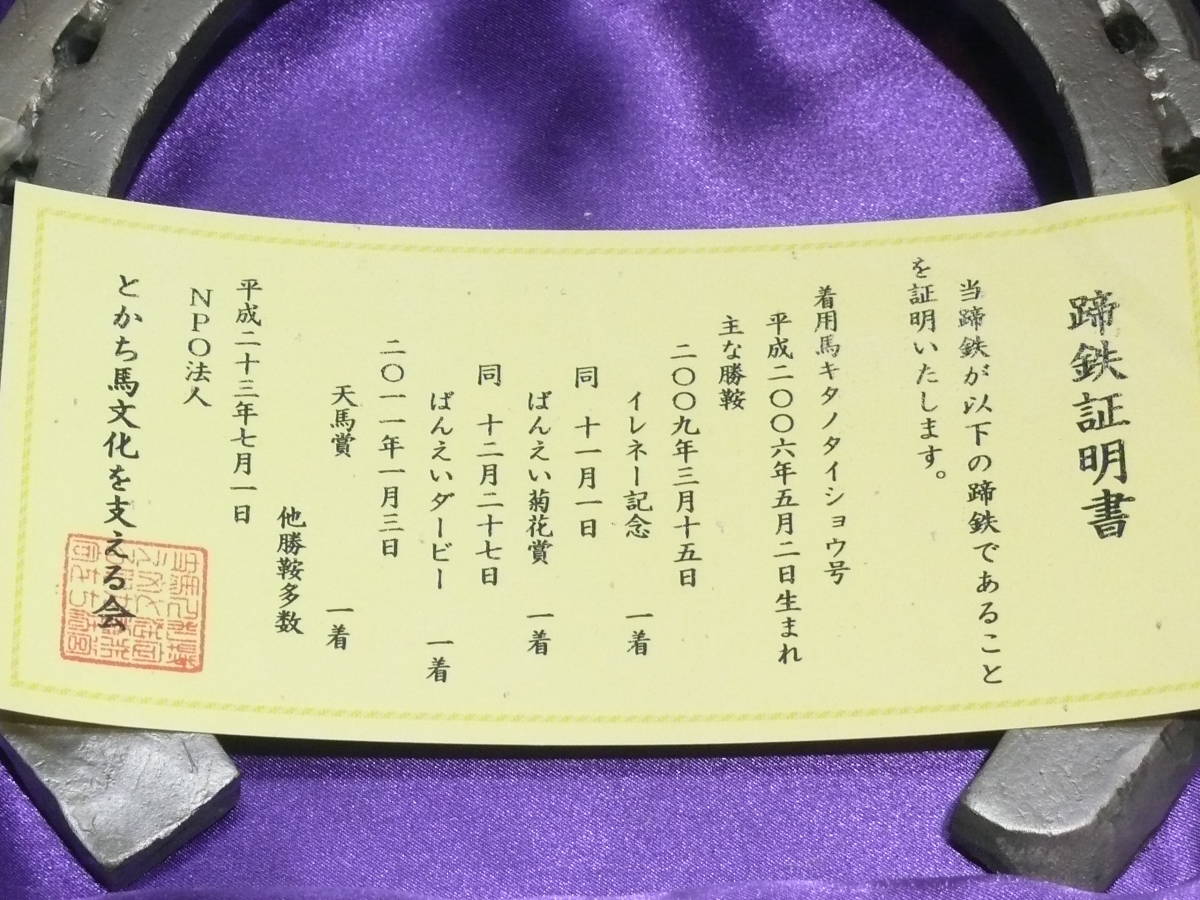 蹄鉄証明書
当蹄鉄が以下の蹄鉄であること
を証明いたします。
着用馬キタノタイショウ号
平成二〇〇六年五月二日生まれ
主な勝鞍
二〇〇九年三月十五日
イレネー記念　一着
同　十一月一日
ばんえい菊花賞　一着
同　十二月二十七日
ばんえいダービー　一着
二〇一一年一月三日
天馬賞　一着
他勝鞍多数
平成二十三年七月一日
NPO法人
とかち馬文化を支える会